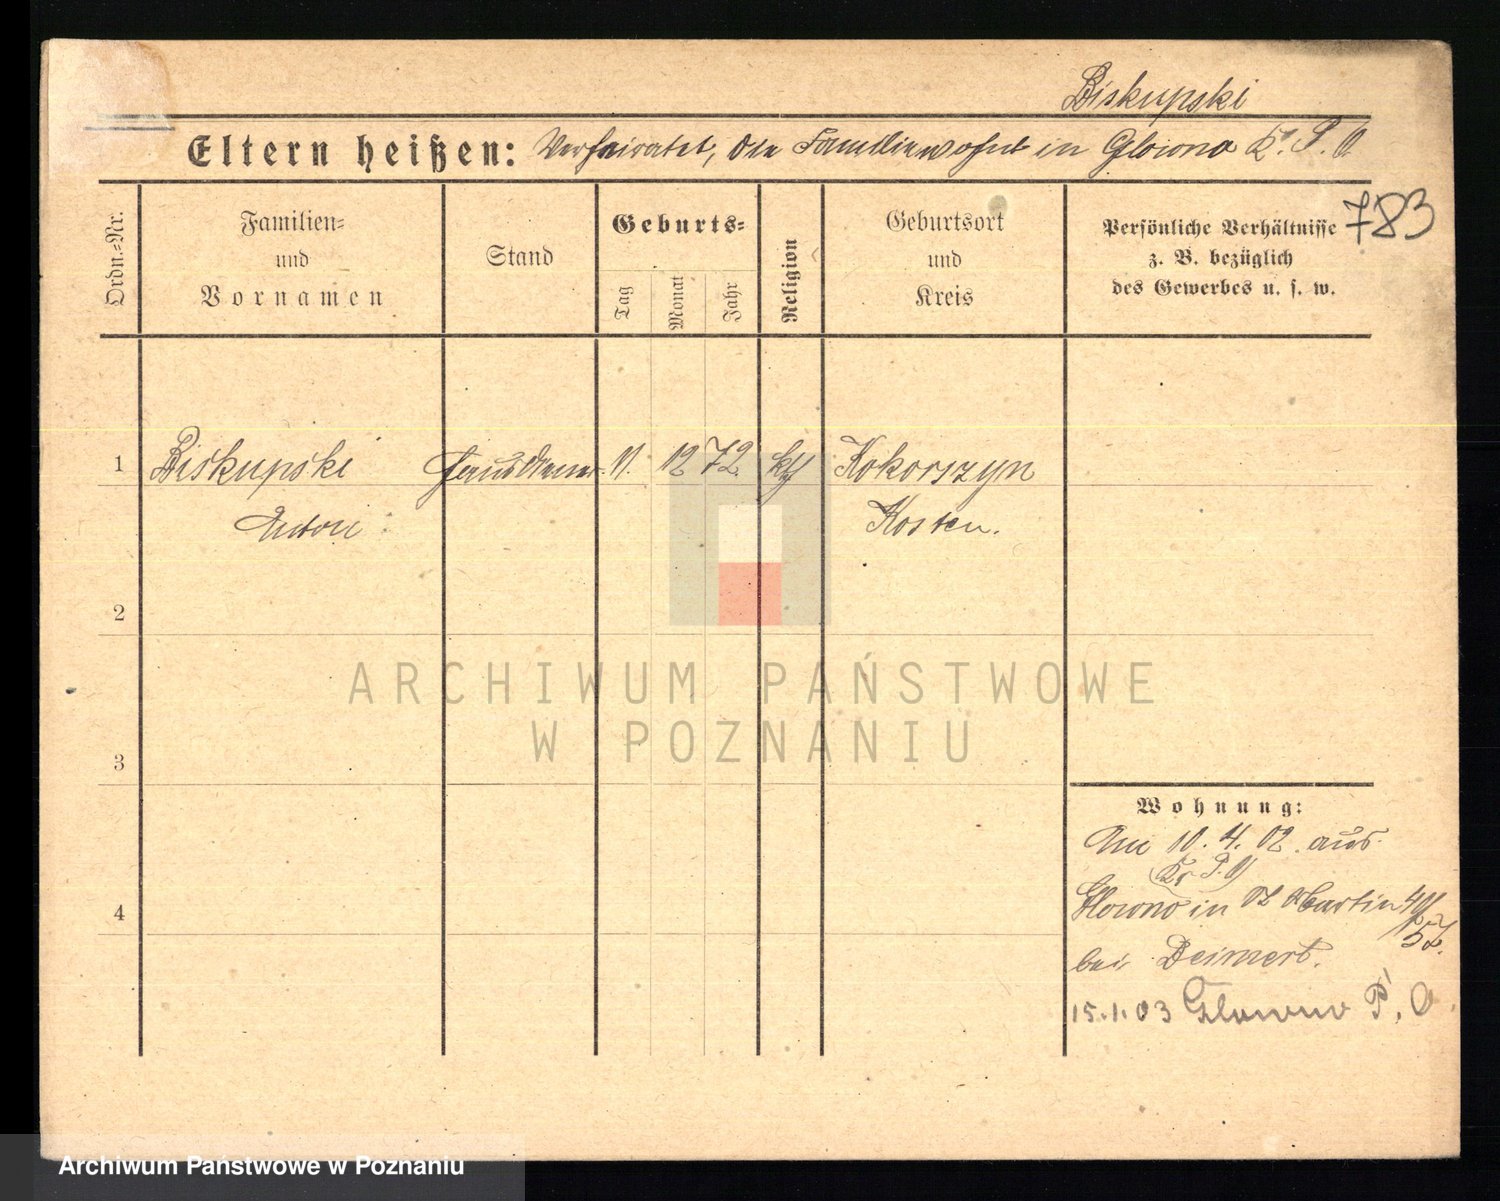 Biskupski
Eltern heißen: Verheiratet, die Familie wohnt in Glowno Kr. P. O
783
Ordn.=Nr.
Familien=
und
Vornamen
Stand
Geburts=
Tag
Monat
Jahr
Religion
Geburtsort
und
Kreis
Persönliche Verhältnisse
z. B. bezüglich
des Gewerbes u. s. w.
1 Biskupski Hausdiener 11. 12 72 kth Kokorszyn
Anton Kosten.
2
3
4
Wohnung:
An 10. 4. 02. aus
(Kr P. O)
Glowno in St Martin 49/
52.
bei Deimert.
15.1.03 Glowno P. O.
ARCHIWUM PAŃSTWOWE
W POZNANIU
Archiwum Państwowe w Poznaniu